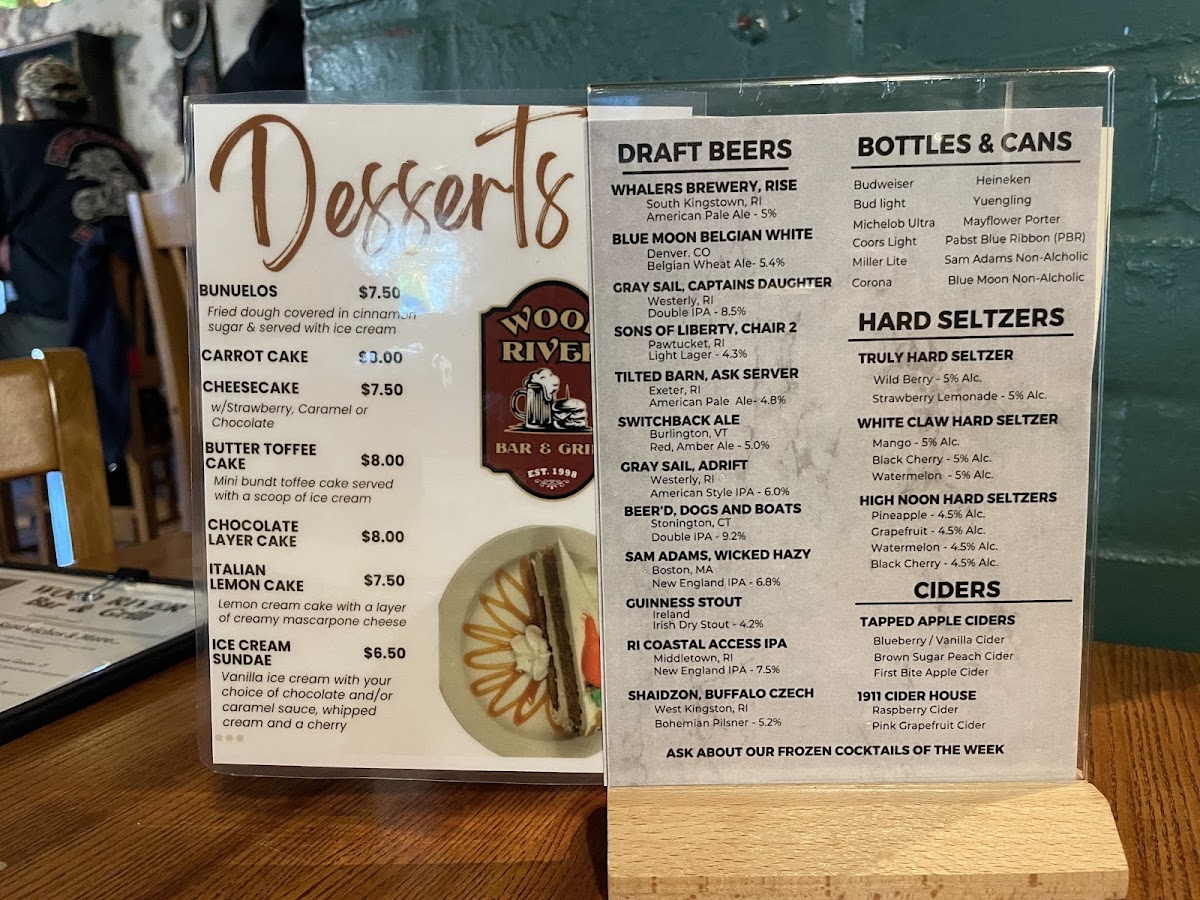 Desserts
BUNUELOS $7.50
Fried dough covered in cinnamon
sugar & served with ice cream
CARROT CAKE
CHEESECAKE $7.50
w/Strawberry, Caramel or
Chocolate
BUTTER TOFFEE
CAKE $8.00
Mini bundt toffee cake served
with a scoop of ice cream
CHOCOLATE
LAYER CAKE $8.00
ITALIAN
LEMON CAKE $7.50
Lemon cream cake with a layer
of creamy mascarpone cheese
ICE CREAM
SUNDAE $6.50
Vanilla ice cream with your
choice of chocolate and/or
caramel sauce, whipped
cream and a cherry
WOOD
RIVER
BAR & GRI
EST. 1998
DRAFT BEERS
WHALERS BREWERY, RISE
South Kingstown, RI
American Pale Ale - 5%
BLUE MOON BELGIAN WHITE
Denver. CO
Belgian Wheat Ale- 5.4%
GRAY SAIL, CAPTAINS DAUGHTER
Westerly, RI
Double IPA - 8.5%
SONS OF LIBERTY, CHAIR 2
Pawtucket, RI
Light Lager - 4.3%
TILTED BARN, ASK SERVER
Exeter, RI
American Pale Ale- 4.8%
SWITCHBACK ALE
Burlington, VT
Red, Amber Ale - 5.0%
GRAY SAIL, ADRIFT
Westerly, RI
American Style IPA - 6.0%
BEER'D, DOGS AND BOATS
Stonington, CT
Double IPA - 9.2%
SAM ADAMS, WICKED HAZY
Boston, MA
New England IPA - 6.8%
GUINNESS STOUT
Ireland
Irish Dry Stout - 4.2%
RI COASTAL ACCESS IPA
Middletown, RI
New England IPA - 7.5%
SHAIDZON, BUFFALO CZECH
West Kingston, RI
Bohemian Pilsner - 5.2%
BOTTLES & CANS
Budweiser Heineken
Bud light Yuengling
Michelob Ultra Mayflower Porter
Coors Light Pabst Blue Ribbon (PBR)
Miller Lite Sam Adams Non-Alcholic
Corona Blue Moon Non-Alcholic
HARD SELTZERS
TRULY HARD SELTZER
Wild Berry - 5% Alc.
Strawberry Lemonade - 5% Alc.
WHITE CLAW HARD SELTZER
Mango - 5% Alc.
Black Cherry - 5% Alc.
Watermelon - 5% Alc.
HIGH NOON HARD SELTZERS
Pineapple - 4.5% Alc.
Grapefruit - 4.5% Alc.
Watermelon - 4.5% Alc.
Black Cherry - 4.5% Alc.
CIDERS
TAPPED APPLE CIDERS
Blueberry / Vanilla Cider
Brown Sugar Peach Cider
First Bite Apple Cider
1911 CIDER HOUSE
Raspberry Cider
Pink Grapefruit Cider
ASK ABOUT OUR FROZEN COCKTAILS OF THE WEEK
WOOD RIVER
Bar & Grill